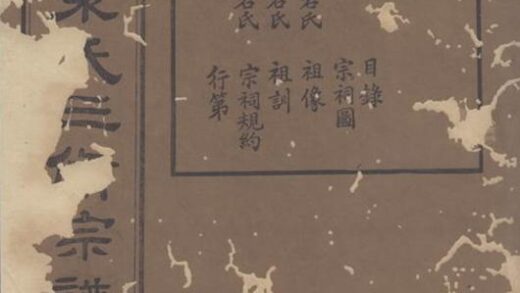 目錄
宗祠圖
氏 祖像
名氏 祖訓
名氏 宗祠規約
行第
氏三修宗譜